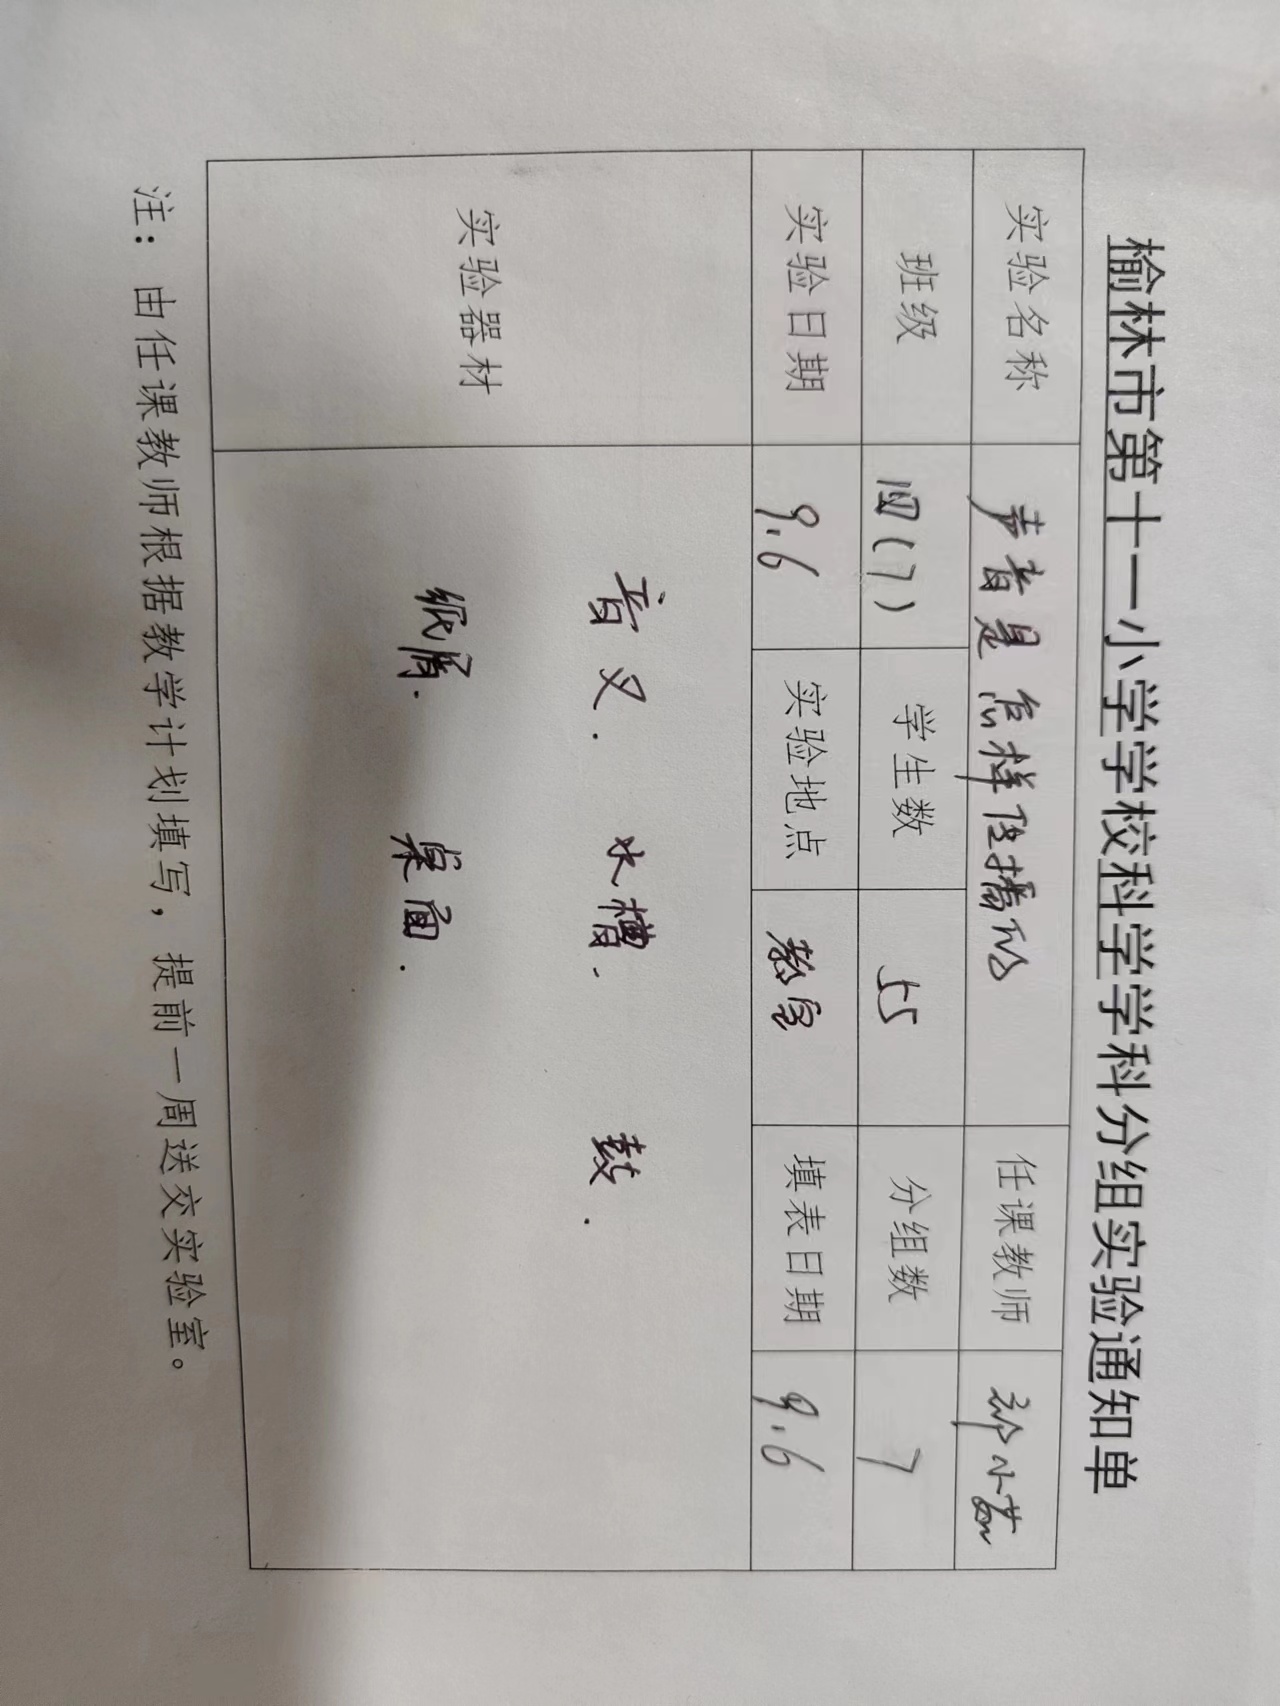 榆林市第十一小学学校科学学科分组实验通知单
实验名称 声音是怎样传播的 任课教师
班级 四(7) 学生数 55 分组数 7
实验日期 9.6 实验地点 教室 填表日期 9.6
实验器材 音叉. 水槽. 鼓.
纸屑. 桌面.
注：由任课教师根据教学计划填写，提前一周送交实验室。